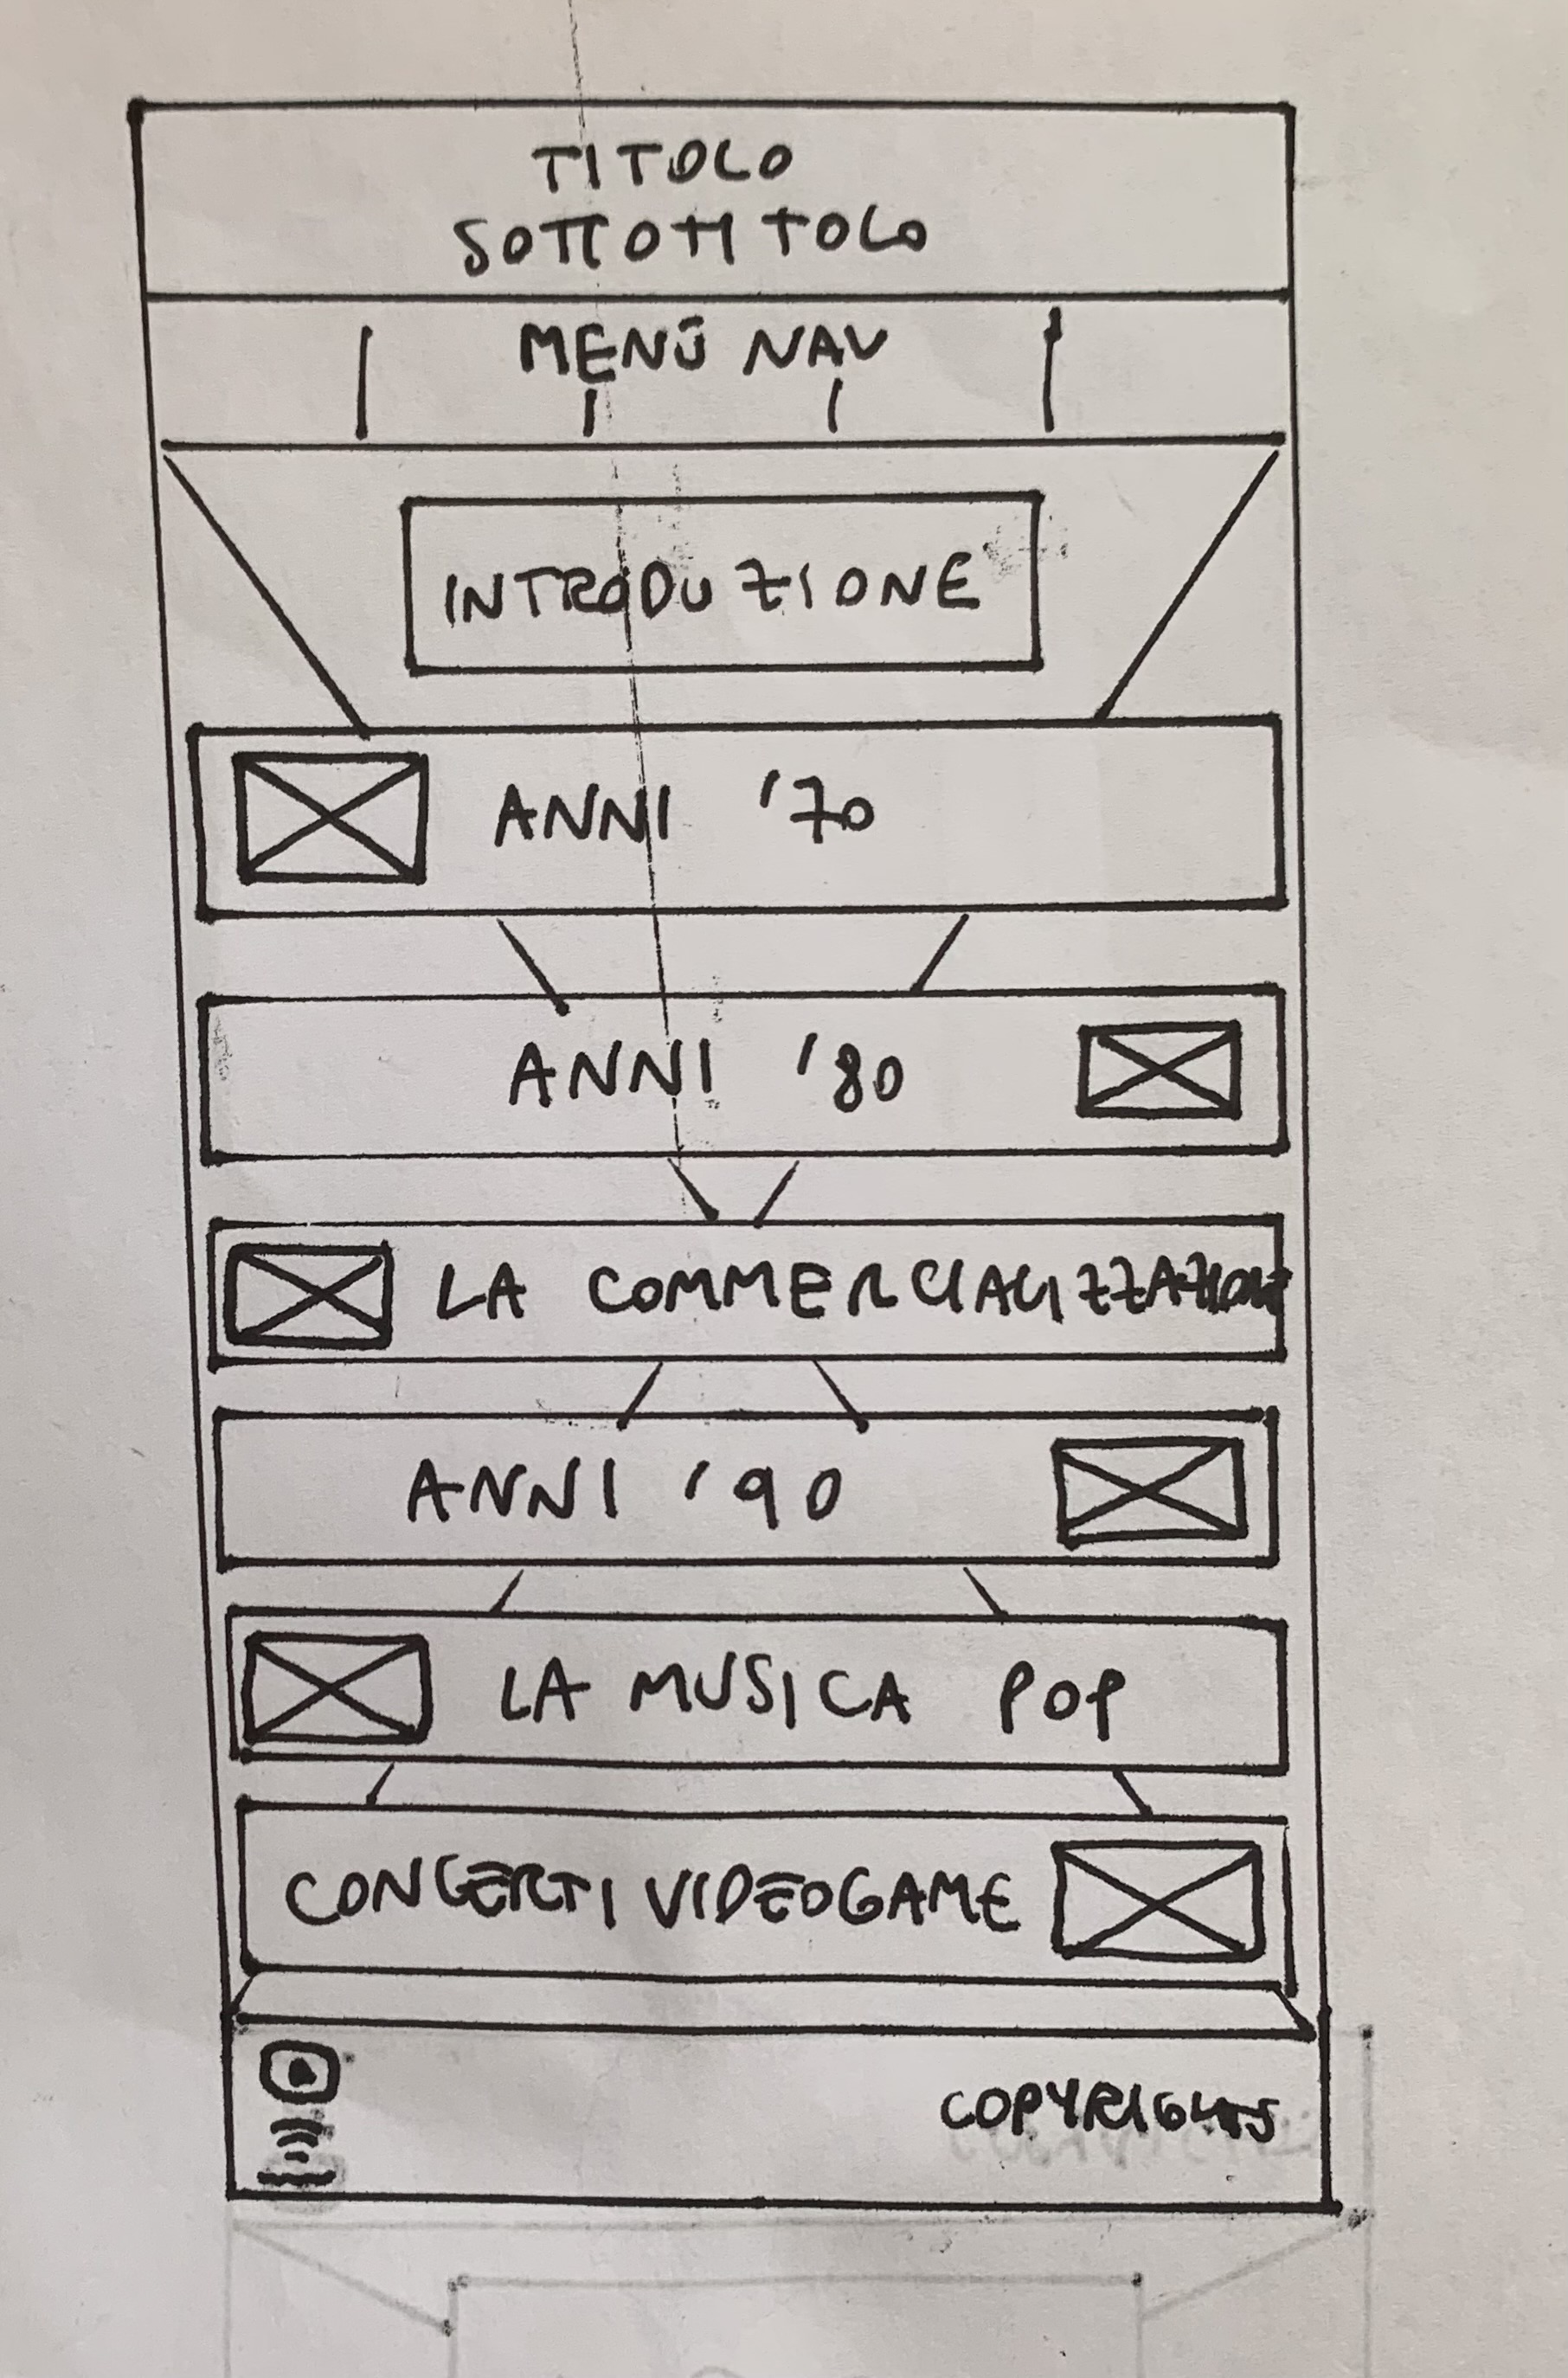 TITOLO
SOTTOTITOLO
MENÚ NAV
INTRODUZIONE
ANNI '70
ANNI '80
LA COMMERCIALIZZAZIONE
ANNI '90
LA MUSICA POP
CONCERTI VIDEOGAME
COPYRIGHTS